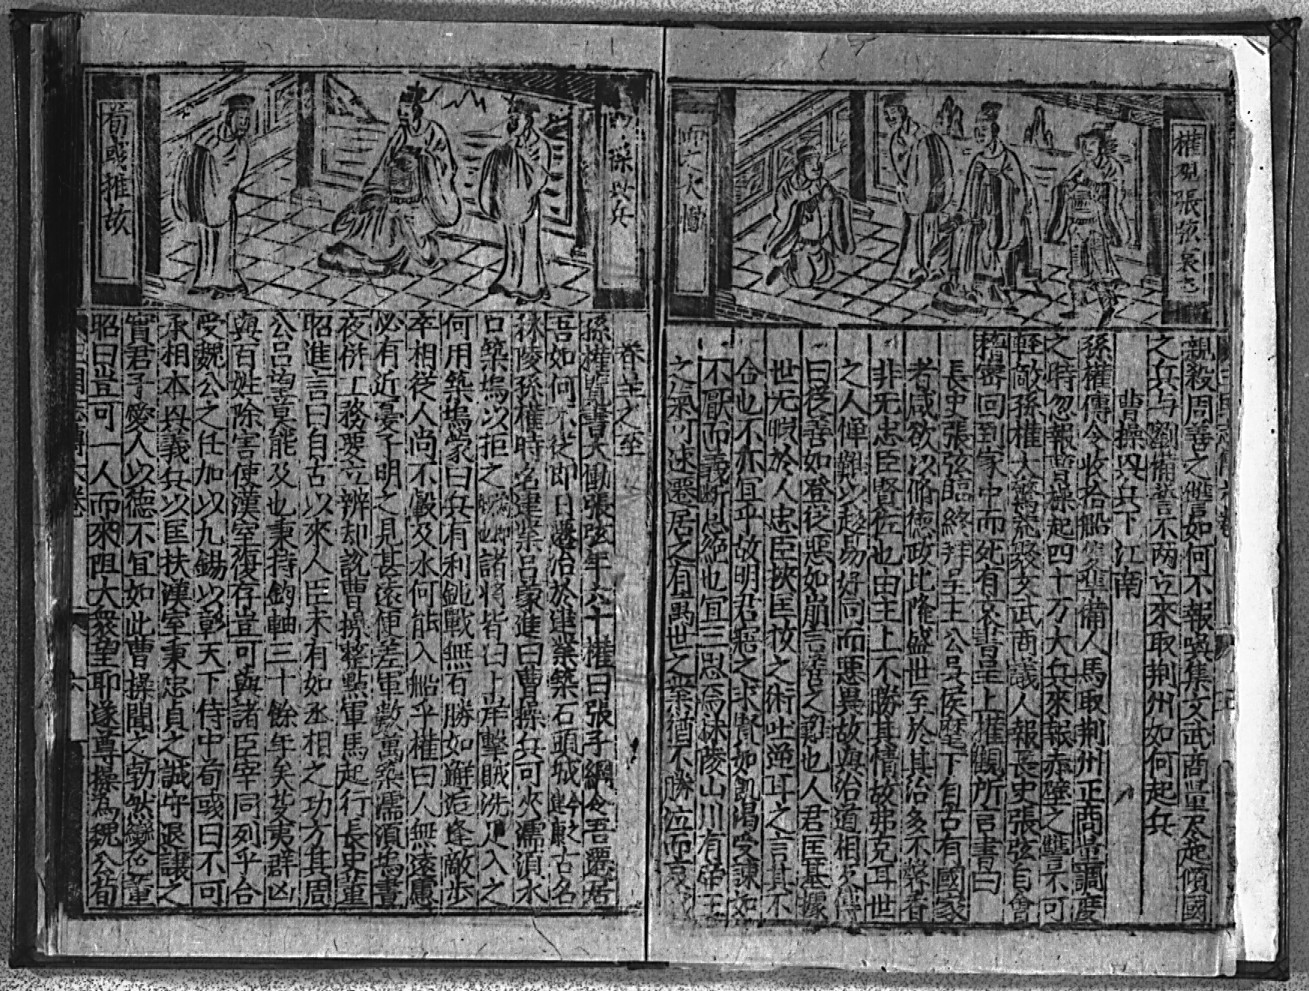 權見張紘哀書
而大慟
親殺周善之讐如何不報吳集文武商量尽起傾國
之兵与劉備誓不两立來取荆州如何起兵
曹操興兵下江南
孫權傳令收拾船隻準備人馬取荆州正商量調度
之時忽報曹操起四十万大兵來報赤壁之讐不可
輕敵孫權大驚荒聚文武商議人報長史張紘自會
稽密回到家中而死有哀書呈上權觀所言書曰
長史張紘臨終拜主主公吳侯麾下自古有國家
者咸欲以脩德政比隆盛世至於其治多不馨香
非无忠臣賢佐也由主上不勝其情故弗克耳世
之人憚難以趍易好同而惡異故與治道相反傳
曰從善如登從惡如崩言善之難也人君匡基據
世无假於人忠臣挾匡救之術吐逆耳之言其不
合也不亦宜乎故明君寤之求賢如飢渴受諫如
不厭而義断恩絕也宜三思焉秣陵山川有帝王
之氣可速遷居之有馬世之業猶不勝泣而哀
操興兵
荀彧推故
卷廿之至
孫權覽書大慟張紘年六十權曰張子綱令吾遷居
吾如何不從即日遷治於建業築石頭城
秣陵孫權時名建業呂蒙進曰曹操兵可夾濡湏水
口築塢以拒之諸將皆曰上岸擊賊洗足入之
何用築塢蒙曰兵有利鈍戰無百勝如觧逅逢敵步
卒相從人尚不㲄及水何能入船乎權曰人無遠慮
必有近憂子明之見甚遠便差軍數萬築濡湏塢晝
夜併工務要立辨却說曹操整點軍馬起行長史董
昭進言曰自古以來人臣未有如丞相之功方其周
公呂望莫能及也秉持鈞軸三十餘年矣芟夷群凶
與百姓除害使漢室復存豈可與諸臣宰同列乎合
受魏公之任加以九錫以彰天下侍中荀彧曰不可
承相本興義兵以匡扶漢室秉忠貞之誠守退讓之
實君子愛人以德不宜如此曹操聞之勃然變色董
昭曰豈可一人而來阻大衆望耶遂尊操為魏公荀